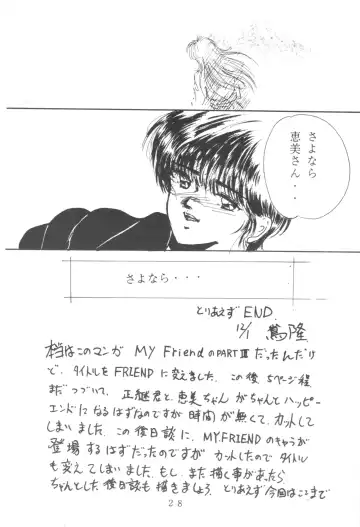 さよなら
恵美さん・・
さよなら・・・
とりあえずEND.
12/1 篤隆
本当はこのマンガ MY FriendのPART Ⅲ だったんだけ
ど、タイトルをFRIENDに変えました。この後5ページ程
まだつづいて、正継君と、恵美ちゃんがちゃんとハッピー
エンドになるはずなのですが時間が無くて、カットして
しまいました。この後日談に、MY.FRIENDのキャラが
登場するはずだったのですがカットしたのでタイトル
も変えてしまいました。もし、また描く事があったら
ちゃんとした後日談も描きましょう。とりあえず今回はここまで
28